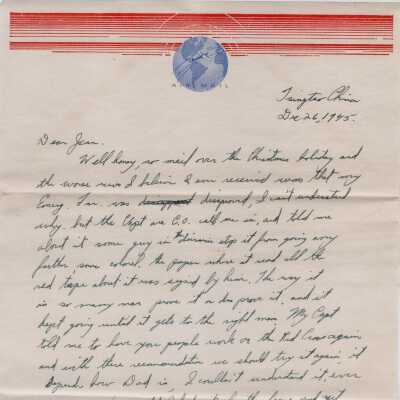 AIR MAIL
Tsingtao China
Dec 26, 1945.
Dear Jean.
Well honey, no mail over the Christmas holiday and
the worse news I believe I ever received was that my
Emerg. Fur. was disapproved, I can't understand
why, but the Capt our C.O. call me in, and told me
about it some guy in the division stop it from going any
further some colonel, the papers where it read all the
red tape about it was signed by him. The way it
is so many men prove it or dis prove it, and it
kept going until it gets to the right man. My Capt
told me to have you people work on the Red Cross again
and with there recomendation we should try it again it
depends how Dad is, I couldn't understand it, ever